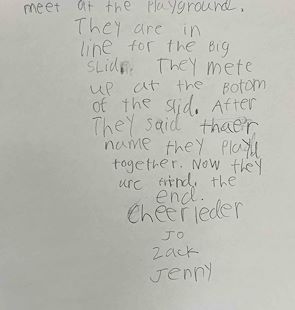 meet at the Playground.
They are in
line for the Big
Slid. They mete
up at the Botom
of the Slid. After
They Said thaer
name they Playd
together. Now they
are frind. the
end.
Cheerleder
Jo
Zack
Jenny